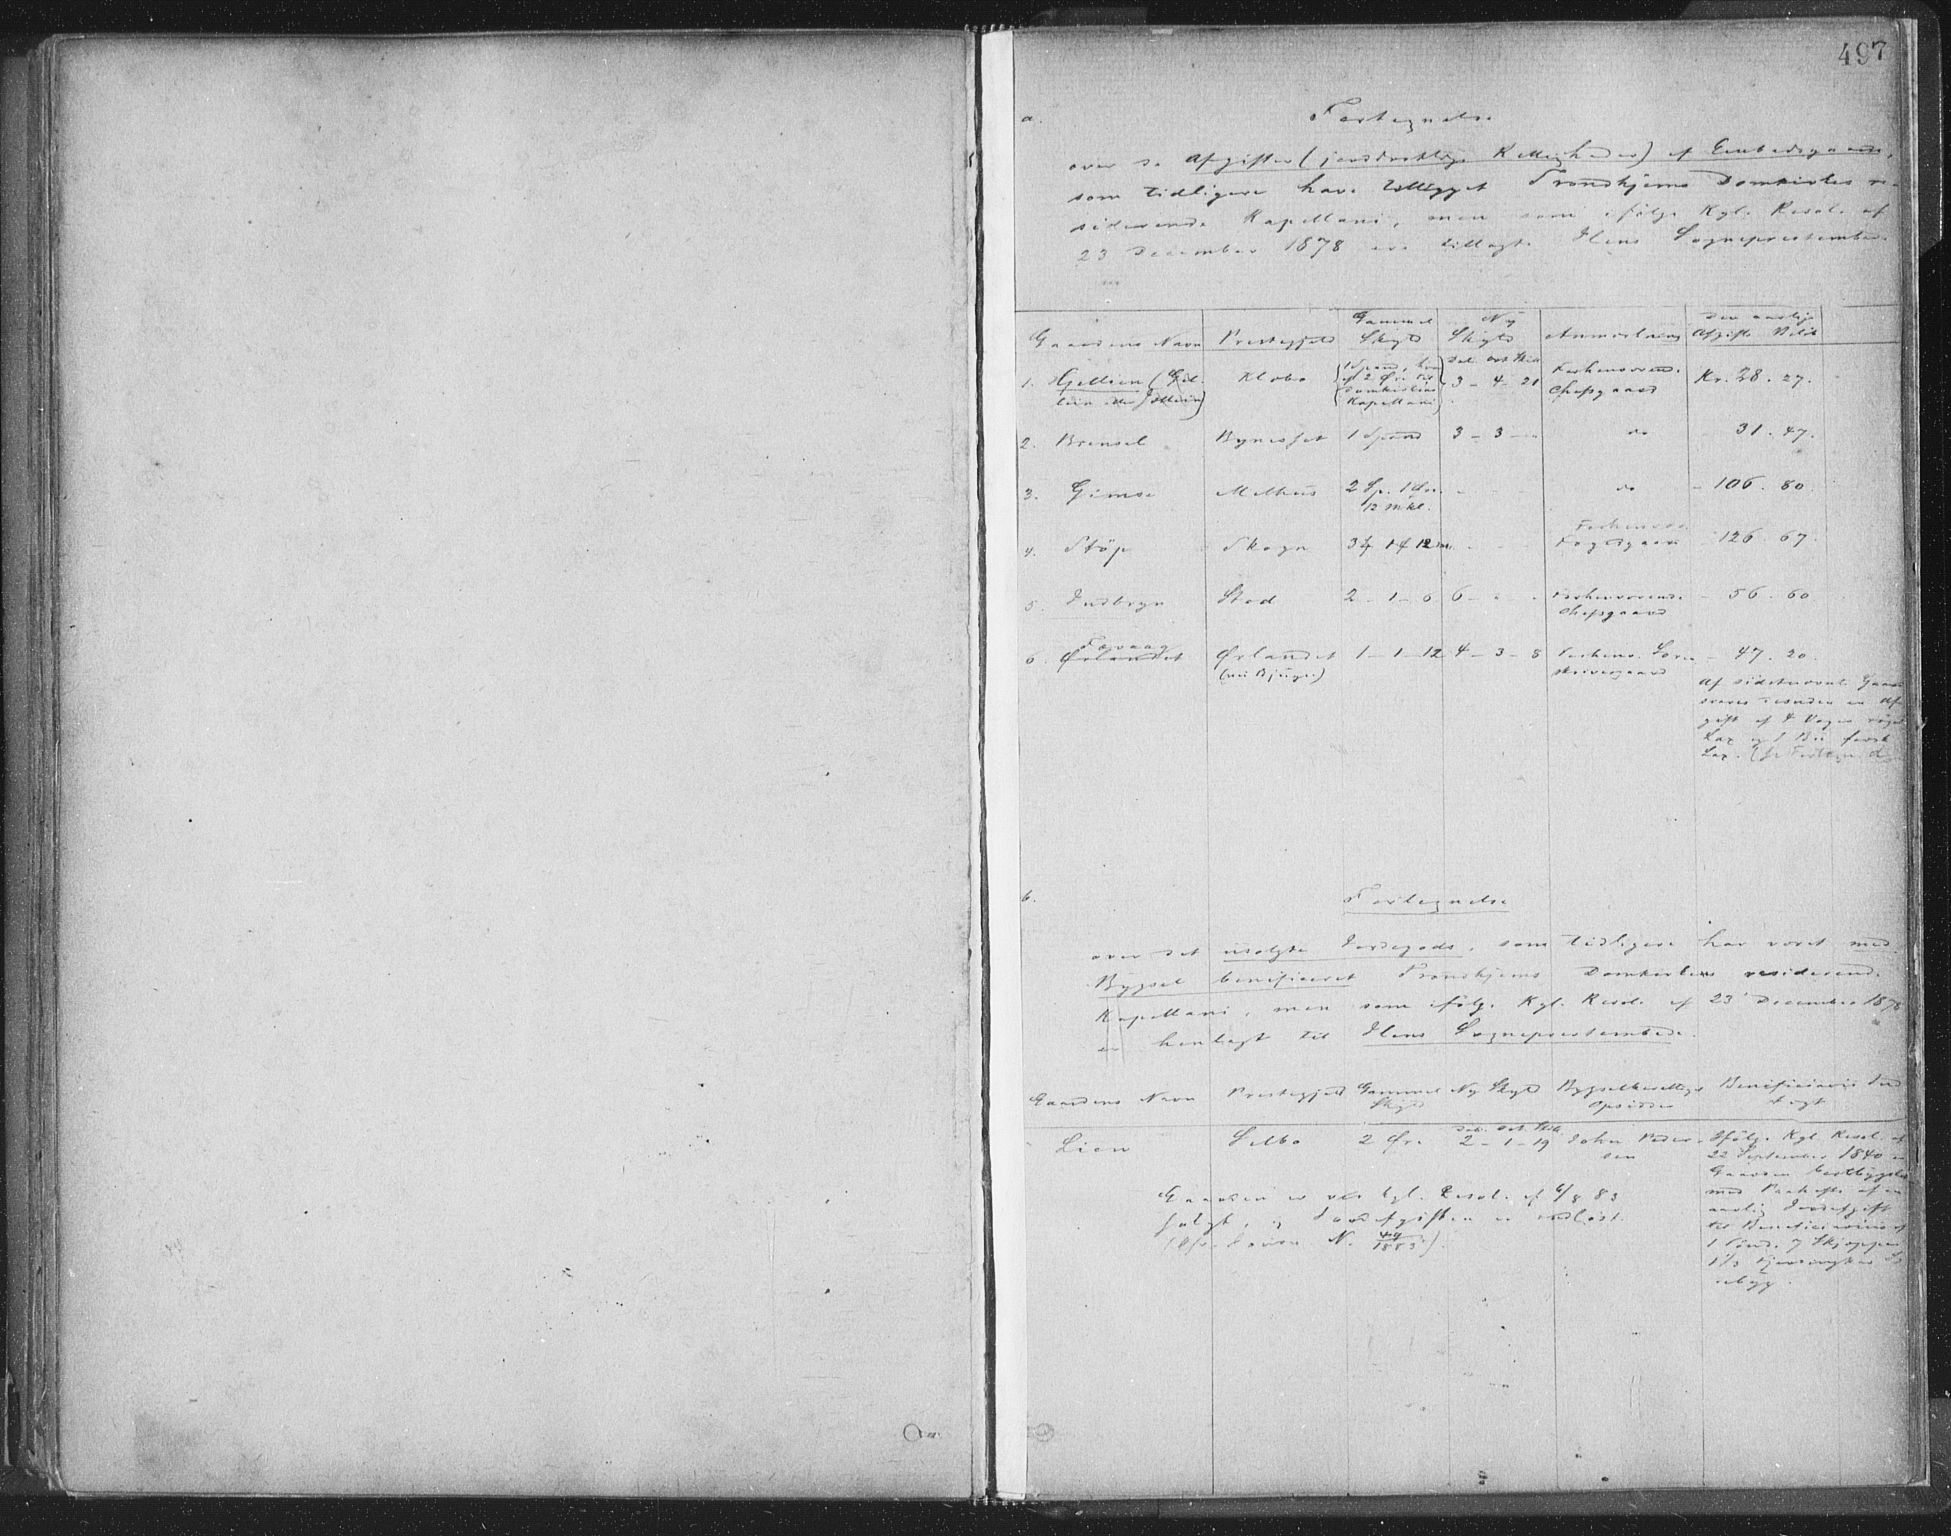 497
a. Fortegnelse
over de Afgifter (jordd Herligheder) af Embedsgaarde,
som tidligere have tilligget Trondhjems Domkirkes re-
siderende Kapellani, men som ifølge Kgl. Resol. af
23 December 1878 ere tillagte Ilens Sognepræstembede.
Gaardens Navn Præstegjeld Gammel Skyld Ny Skyld Anmærkning Den aarlige Afgifts Beløb
Dal. ort Skill
1. Gjellien (Gil- Klæbo 1 Spand, hvoraf 2 Øre til Domkirkens Kapellani 3 - 4 - 21 Forhenværende Chefsgaard Kr. 28. 27.
2. Brensel Bynesset 1 Spand 3 - 3 - do 31. 47.
3. Gimse Melhus 2 Sp. 1 Øre 12 Mkl. - do - 106. 80
4. Støp Skogn Forhenværende Fogedgaard 126. 67.
5. Indbryn Stod 2 - 1 - 6 6 - Forhenværende Chefsgaard - 56. 60
6. Fævaag Ørlandet Ørlandet (nu Bjugn) 1 - 1 - 12 4 - 3 - 8 Forhenv. Sorenskrivergaard - 47. 20.
Af sidstnævnte Gaard
svares desuden en Af-
gift af 4 Voger røget
Lax og 1 Bu fersk
Lax.
b. Fortegnelse
over det usolgte Jordegods, som tidligere har været med
Bygsel beneficeret Trondhjems Domkirkes residerende
Kapellani, men som ifølge Kgl. Resol. af 23 December 1878
er henlagt til Ilens Sognepræstembede.
Gaardens Navn Præstegjeld Gammel Skyld Ny Skyld Opsidder Beneficiarii Indtægt
Dal. Ort Skill.
Lien Selbo 2 Øre 2 - 1 - 19 John Peder-
sen
Ifølge Kgl. Resol. af
22 September 1840 er
Gaarden bortbygslet
med Paahefte af en
aarlig Jordafgift
til Beneficiarius af
1 Tønde 7 Skjepper
1 1/3
Gaarden er ved kgl. Resol. af 6/8 83
solgt, og Jordafgiften er indløst.